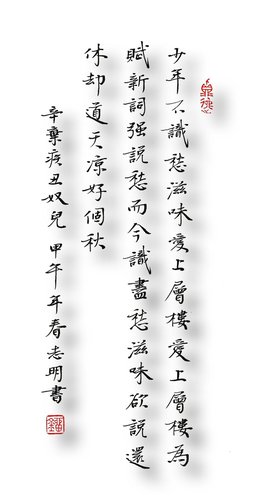 少年不識愁滋味愛上層樓愛上層樓為
賦新詞强說愁而今識盡愁滋味欲說還
休却道天凉好個秋
辛棄疾丑奴兒 甲午年春志明書